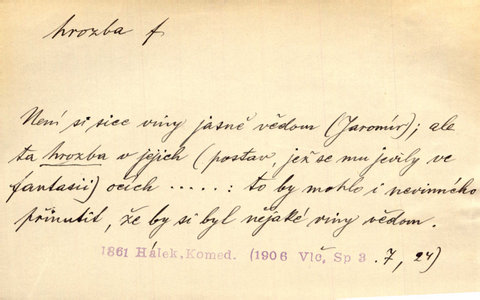 hrozba f
Není si sice viny jasně vědom (Jaromír); ale
ta hrozba v jejich (postav, jež se mu jevily ve
fantasii) očích ......: to by mohlo i nevinného
přinutit, že by si byl nějaké viny vědom.
1861 Hálek, Komed. (1906 Vlč, Sp 3. 7, 24)